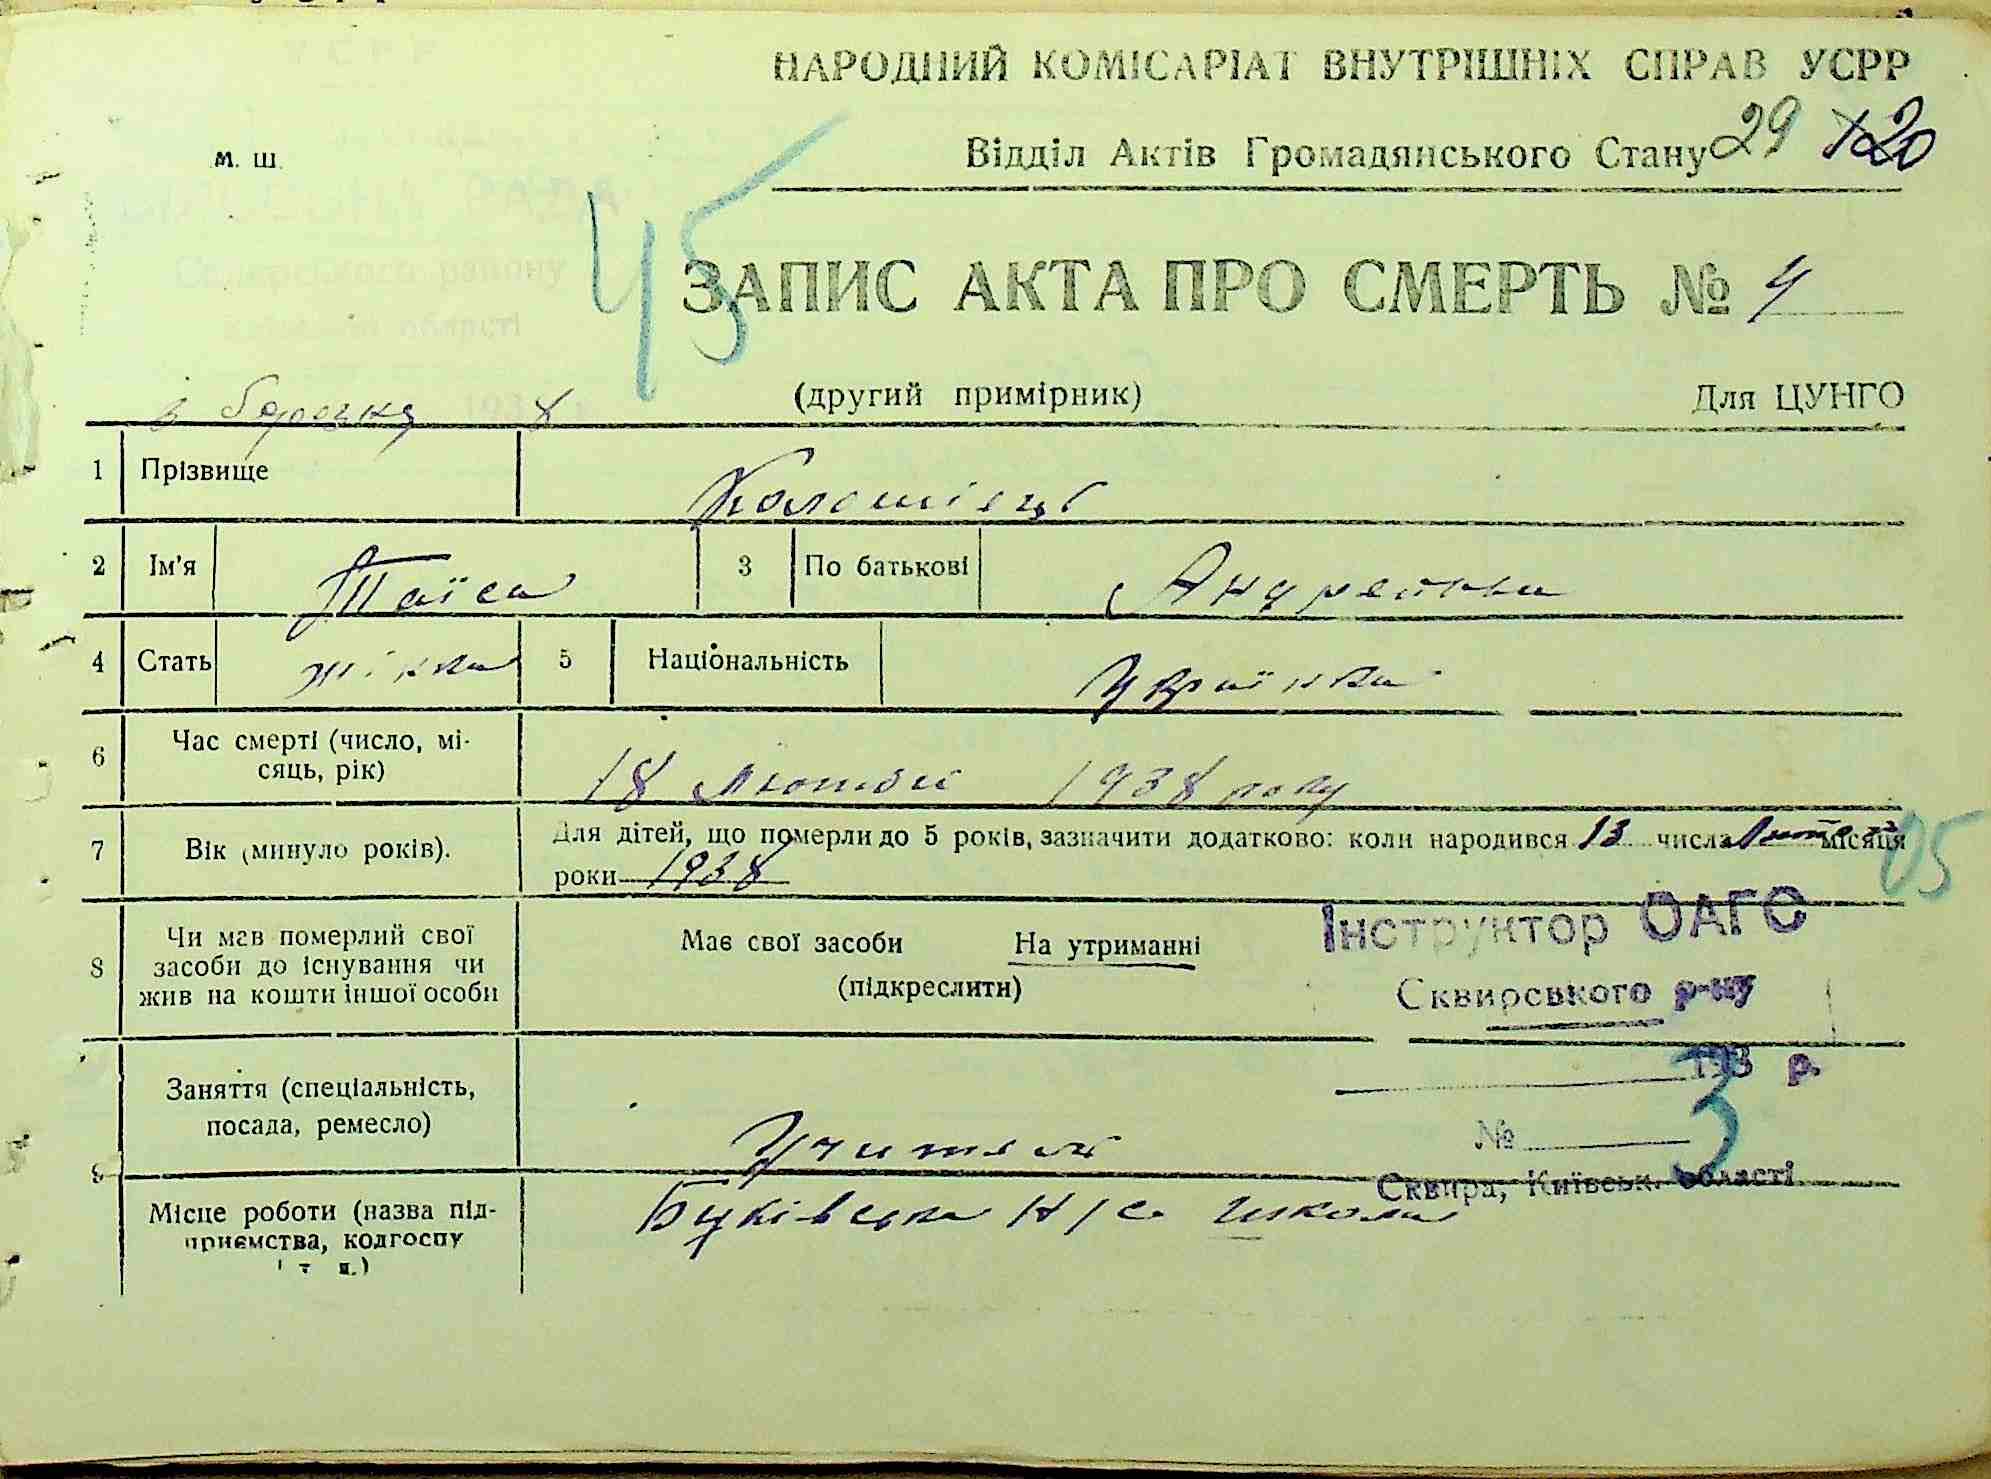 НАРОДНИЙ КОМІСАРІАТ ВНУТРІШНІХ СПРАВ УСРР
М. Ш.
Відділ Актів Громадянського Стану 29 20
45
ЗАПИС АКТА ПРО СМЕРТЬ № 4
Сквирського району
області
в березня 1938
(другий примірник) Для ЦУНГО
1 Прізвище Коломієць
2 Ім'я Таїса 3 По батькові Андреевна
4 Стать жінка 5 Національність Українка
6 Час смерті (число, мі-
сяць, рік)
18 Лютого 1938 року
7 Вік (минуло років). Для дітей, що померли до 5 років, зазначити додатково: коли народився 13 числа Лютого місяця
роки 1938
05
8 Чи мав померлий свої
засоби до існування чи
жив на кошти іншої особи
Має свої засоби На утриманні
(підкреслити)
Інструктор ОАГС
Сквирського р-ну
193 р.
№ 3
Сквира, Київськ. області
9 Заняття (спеціальність,
посада, ремесло)
Учитель
Місце роботи (назва під-
приємства, колгоспу
і т. п.)
Буківська Н/С школа